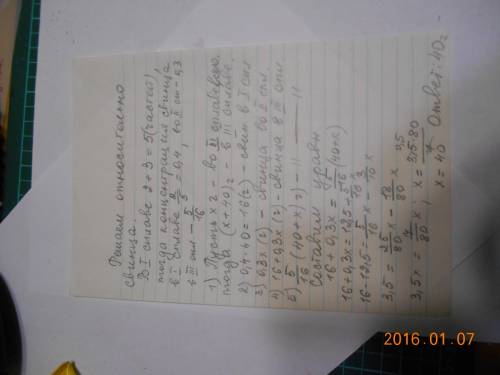 Решаем относительно
свинца.
В I сплаве 2+3=5(частей),
тогда концентрация свинца
в I сплаве 2/5=0,4, во II спл-0,3
в III спл - 5/16
1) Пусть x г - во II сплаве свинца,
тогда (x+40)г - в III сплаве.
2) 0,4·40=16(г) - свин в I спл
3) 0,3x (г) - свинца во II спл.
4) 16+0,3x (г) - свинца в III спл.
5) 5/16 (40+x) г) - 11 — 11
Составим уравн
16+0,3x = 5/16 (40+x)
16+0,3x = 12,5 + 5/16 x
16-12,5 = 5/16 x - 3/10 x
3,5 = 25/80 x - 24/80 x
3,5x = 7/80 x; x = 3,5·80/7
x = 40 Ответ: 40г
2016.01.07